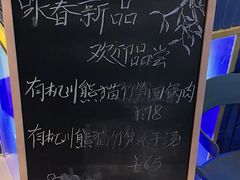 咏春新品
欢迎品尝
有机川熊猫竹笋回锅肉
¥78
有机川熊猫竹笋丸子汤
¥65